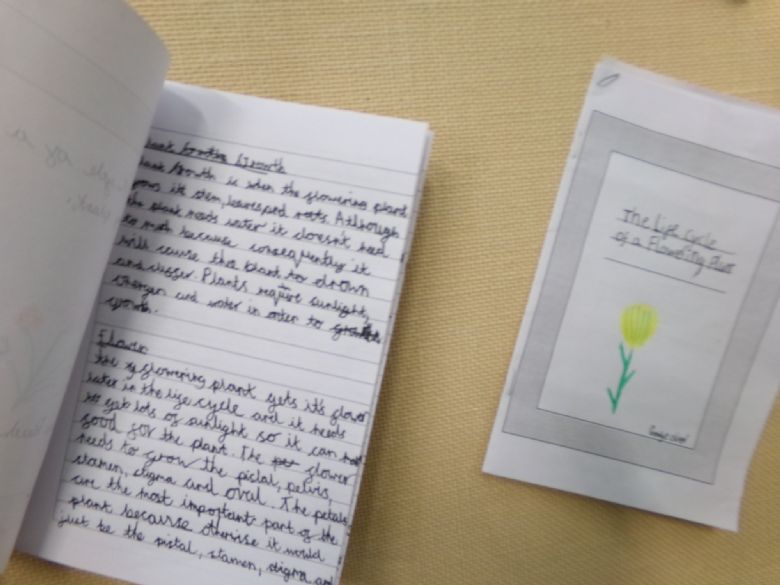 Growth
Growth is when the flowering plant
grows it stem, leaves and roots. Although
the plant needs water it doesn't need
to much because consequently it
will cause the plant to drown
and Plants require sunlight,
and water in order to
growth.
Flower
the flowering plant gets it's flower
later in the life cycle and it needs
to get lots of sunlight so it can
good for the plant. The flower
needs to grow the pistal, pelvis,
stamen, stigma and oval. The petals
are the most important part of the
plant because otherwise it would
just be the pistal, stamen, stigma and
The Life Cycle
of a Flowering Plant